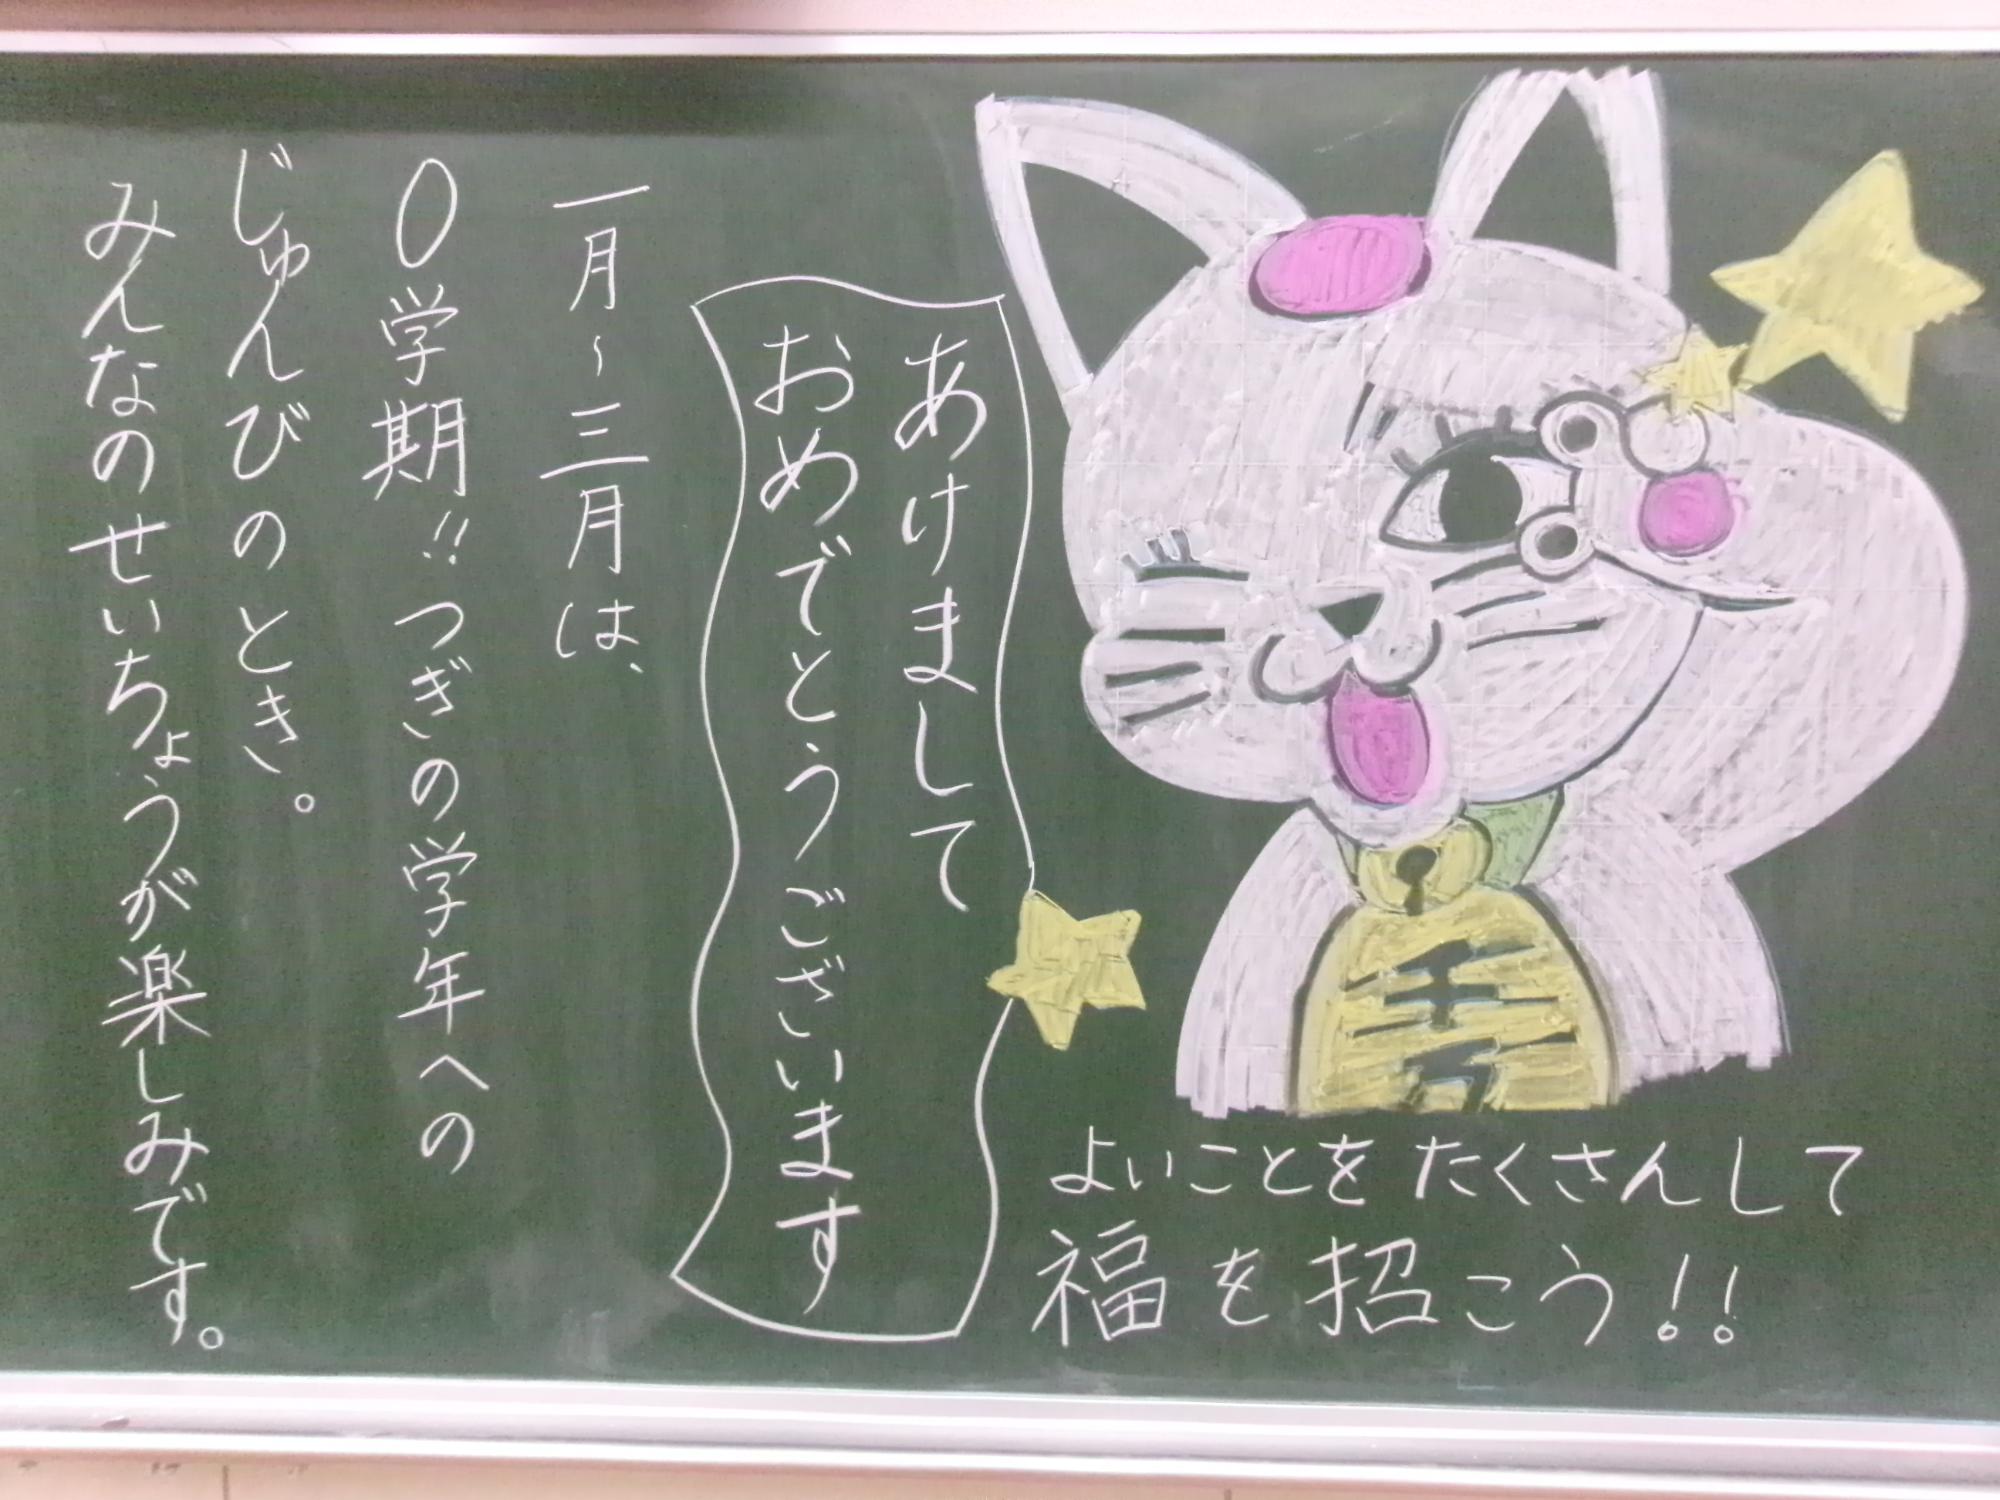 あけまして
おめでとうございます
一月～三月は、
0学期!!つぎの学年への
じゅんびのとき。
みんなのせいちょうが楽しみです。
よいことをたくさんして
福を招こう!!